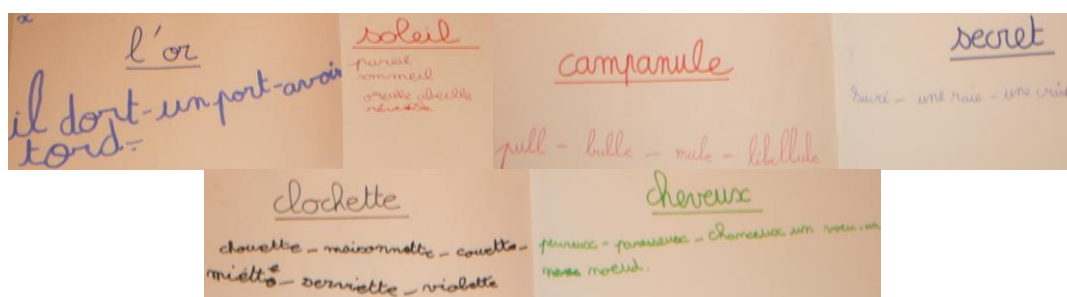 x
l'or
il dort-un port-avoir
tord-
soleil
pareil
sommeil
oreille abeille
campanule
pull - bulle - mule - libellule
secret
sucré - une raie - une craie
clochette
chouette - maisonnette - couette -
miette - serviette - violette
cheveux
peureux - paresseux - chanceux un voeu - un
noeud.